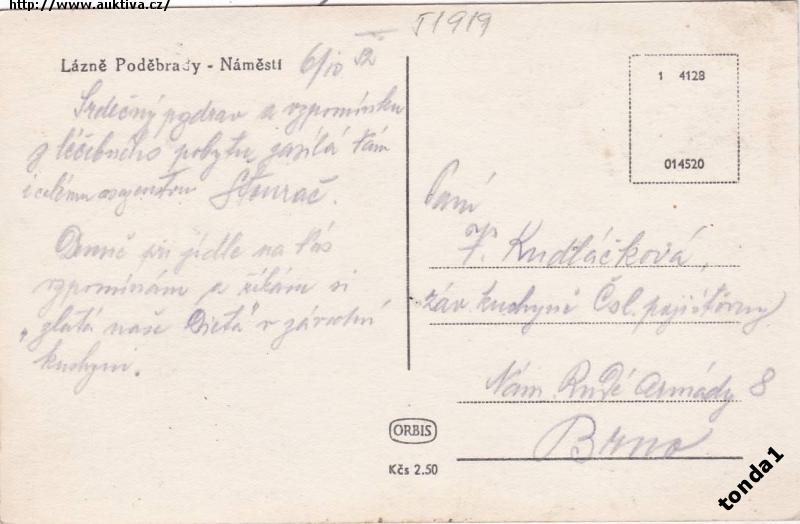 http://www.auktiva.cz/
I 1919
Lázně Poděbrady - Náměstí
6/10 52
Srdečný pozdrav a vzpomínku
z léčebného pobytu zasílá Vám
i celému Štourač.
Denně při jídle na Vás
vzpomínám a říkám si
„zlatá naše Dieta" v závodní
kuchyni.
1 4128
014520
Paní
F. Kudláčková,
záv. kuchyně Čsl. pojišťovny
Nám. Rudé armády 8
Brno
ORBIS
Kčs 2.50
tonda1